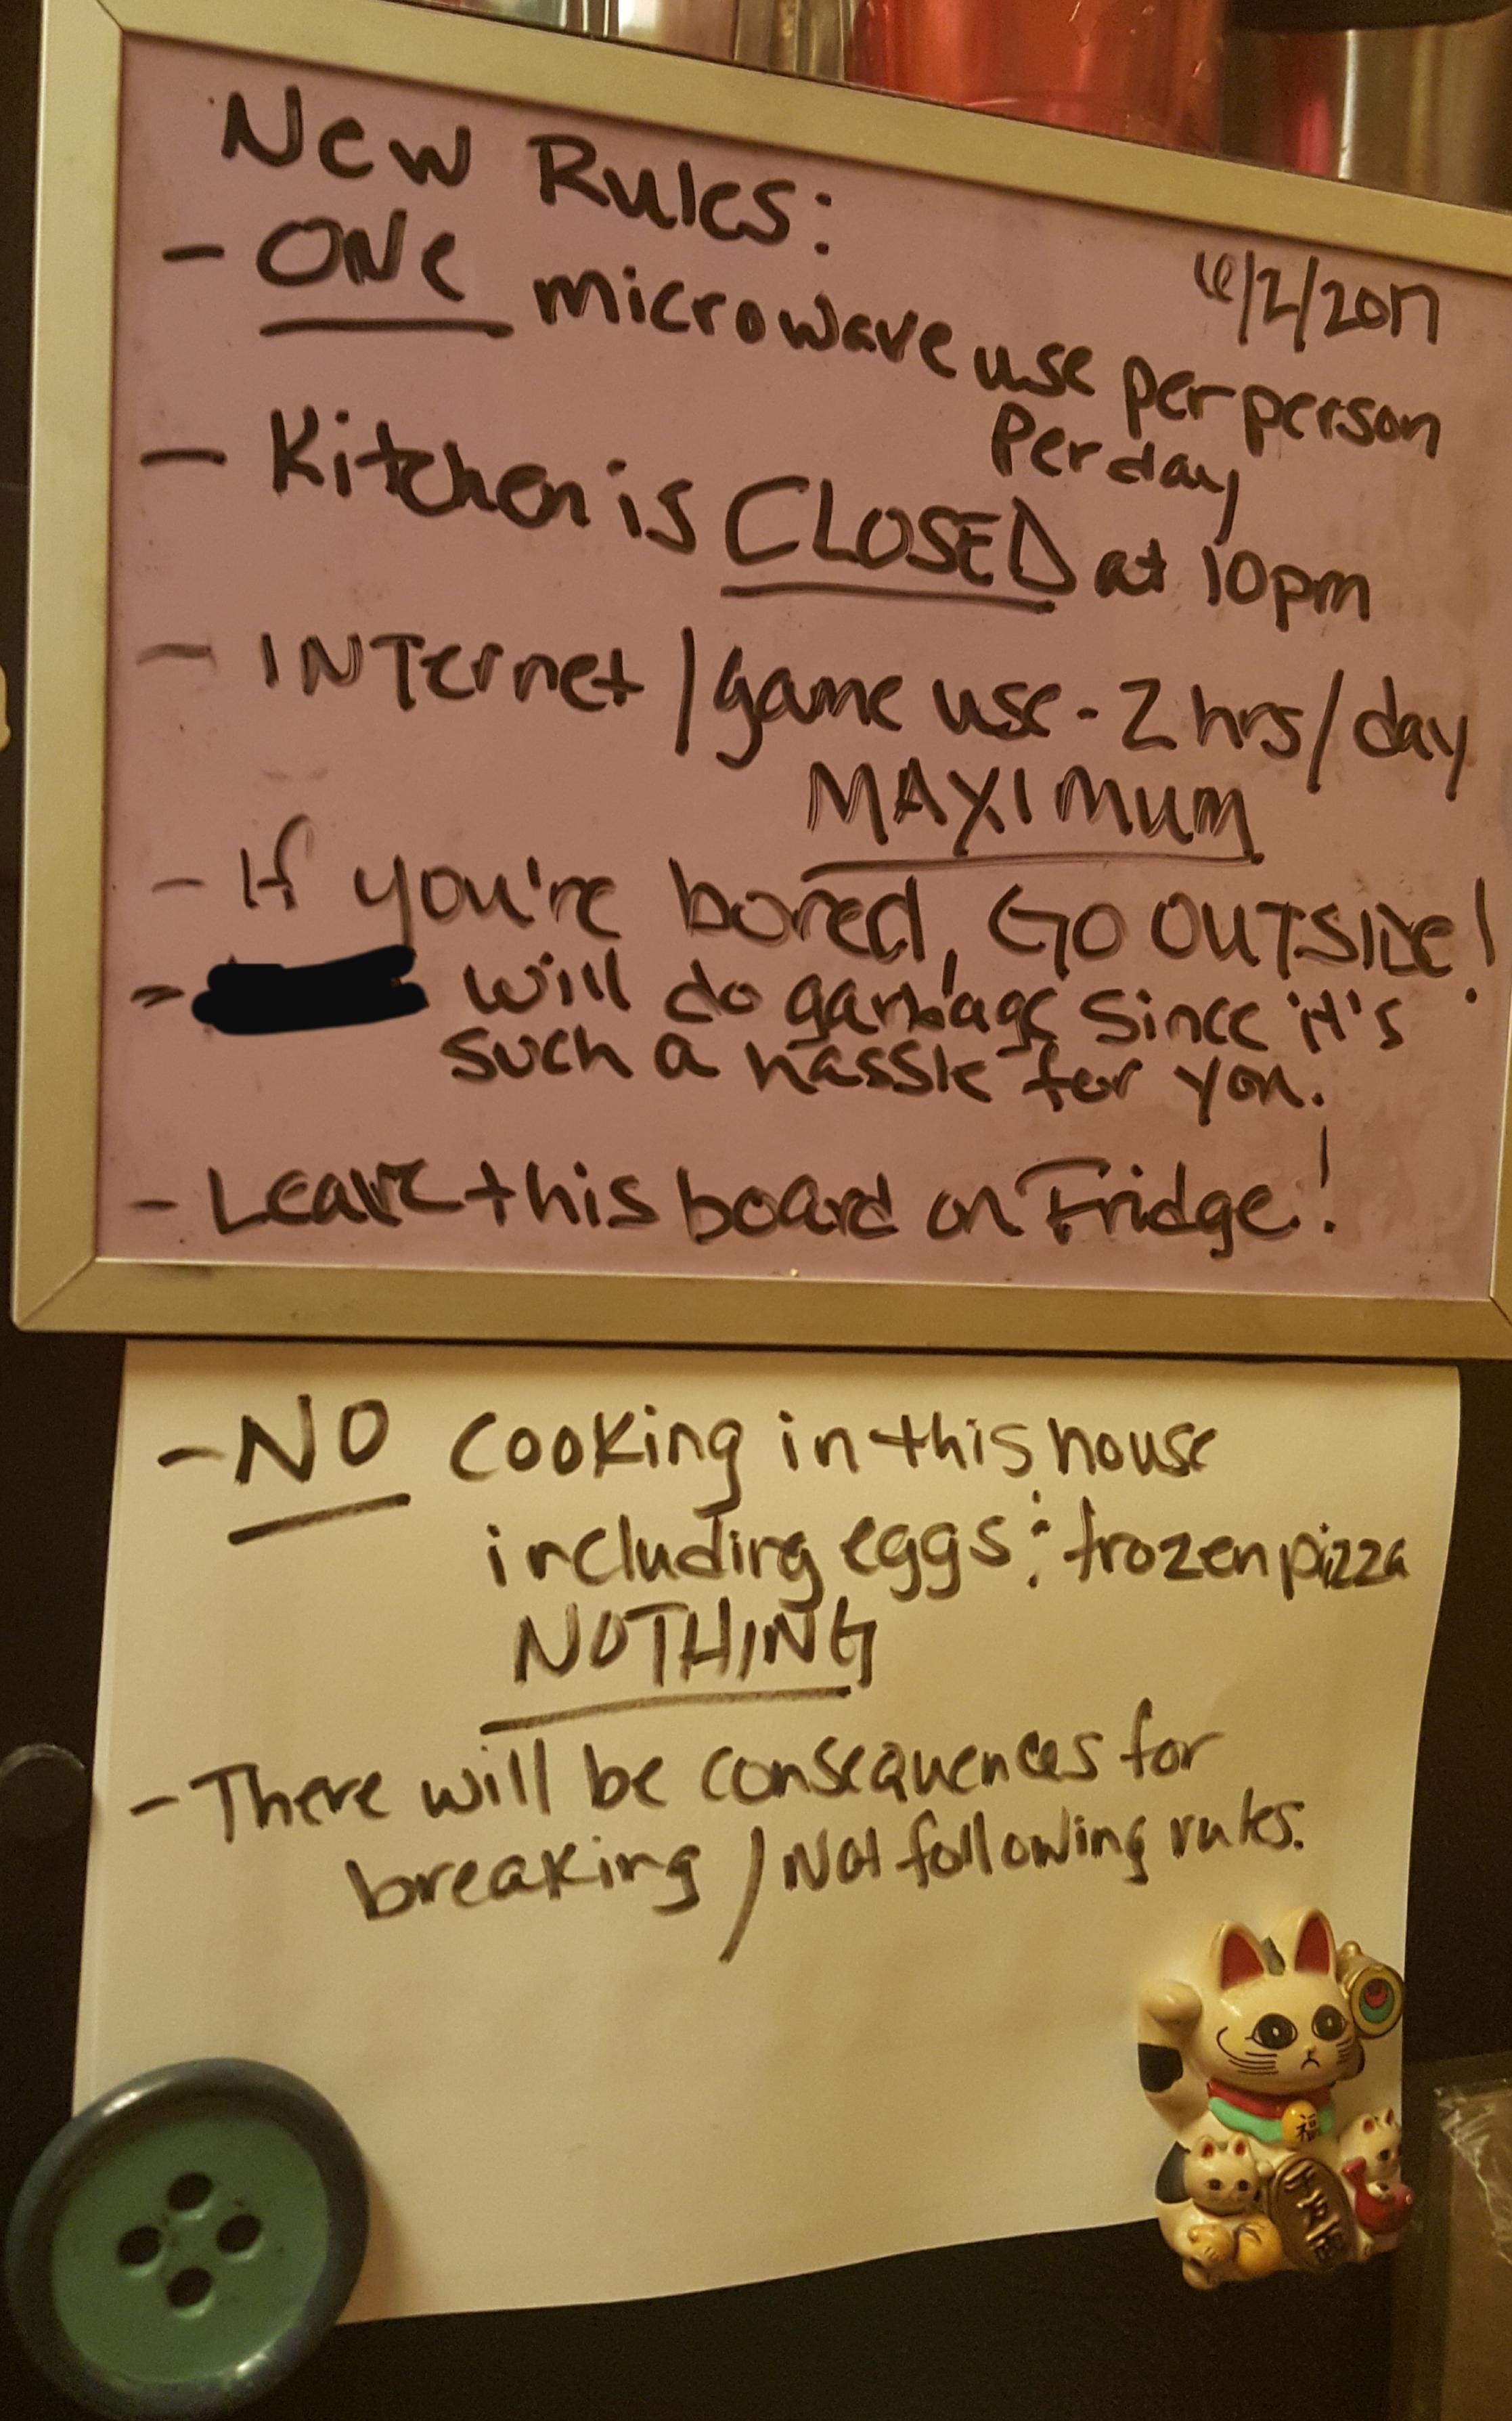 New Rules:
6/2/2017
- ONE microwave use per person
Per day
- Kitchen is CLOSED at 10pm
- INTernet / game use - 2 hrs/day
MAXIMUM
- If you're bored, GO OUTSIDE!
- will do garbage since it's
such a hassle for you.
- Leave this board on Fridge!
- NO cooking in this house
including eggs & frozen pizza
NOTHING
- There will be consequences for
breaking / Not following rules.
福